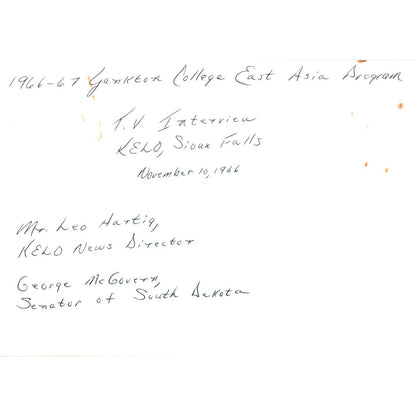 1966-67 Yankton College East Asia Program
T.V. Interview
KELO, Sioux Falls
November 10, 1966
Mr. Leo Hartig,
KELO News Director
George McGovern,
Senator of South Dakota